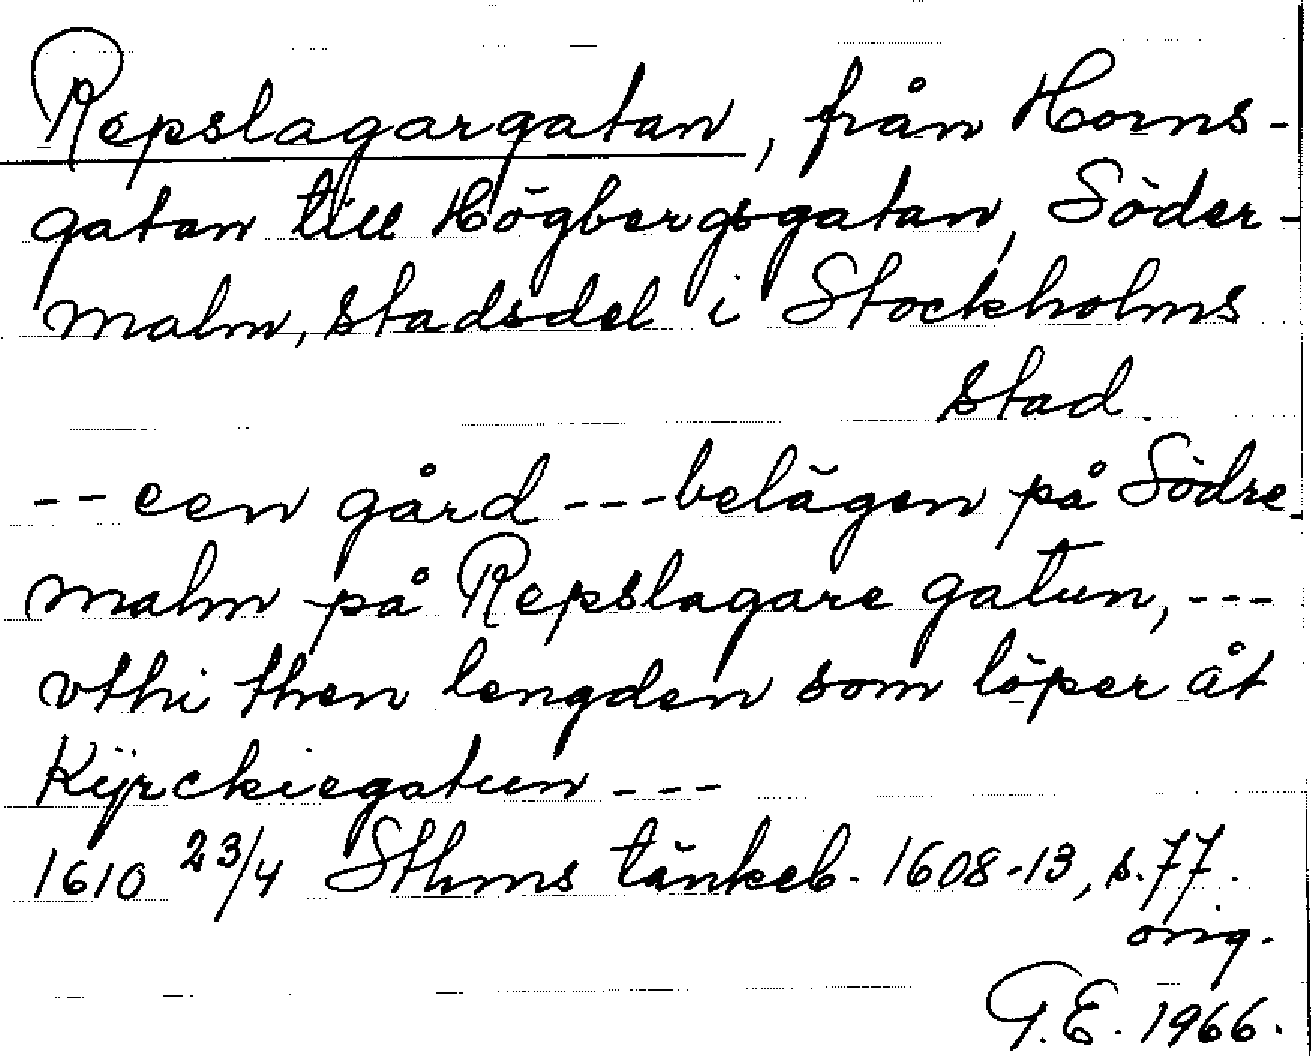 Repslagargatan, från Horns-
gatan till Högbergsgatan, Söder-
malm, stadsdel i Stockholms
stad.
-- een gård --- belägen på Södre
malm på Repslagare gatun, ---
vthi then lengden som löper åt
Kÿrckiegatun ---
1610 23/4 Sthms tänkeb. 1608-13, s. 77.
orig.
G.E. 1966.